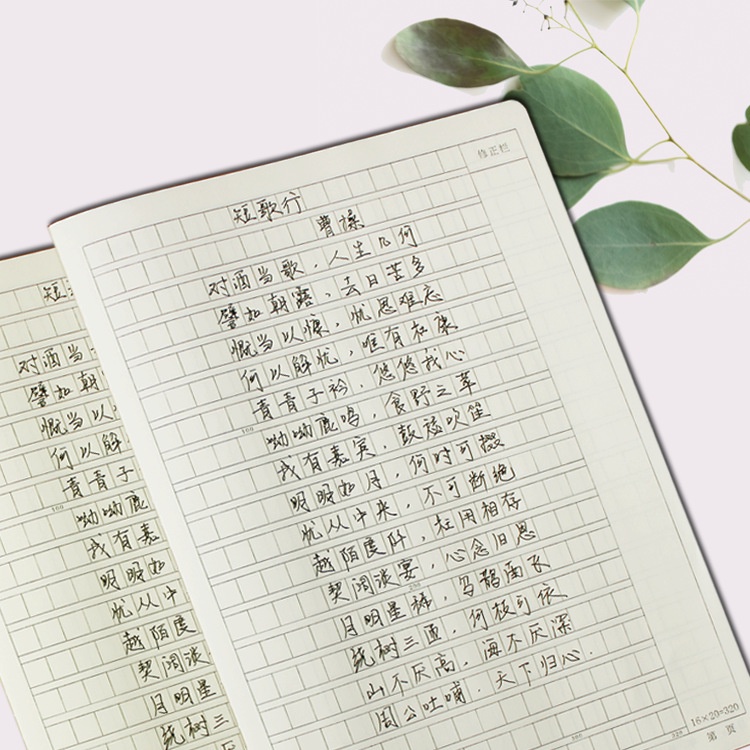 修正栏
短歌行
曹操
对酒当歌，人生几何
譬如朝露，去日苦多
慨当以慷，忧思难忘
何以解忧，唯有杜康
青青子衿，悠悠我心
100
呦呦鹿鸣，食野之苹
我有嘉宾，鼓瑟吹笙
明明如月，何时可掇
忧从中来，不可断绝
越陌度阡，枉用相存
契阔谈宴，心念旧恩
月明星稀，乌鹊南飞
绕树三匝，何枝可依
山不厌高，海不厌深
周公吐哺，天下归心.
300
320
16×20=320
第 页
短
对酒当
譬如朝
慨当以
何以解
青青子
100
呦呦鹿
我有嘉
明明如
忧从中
越陌度
契阔谈
月明星
绕树三